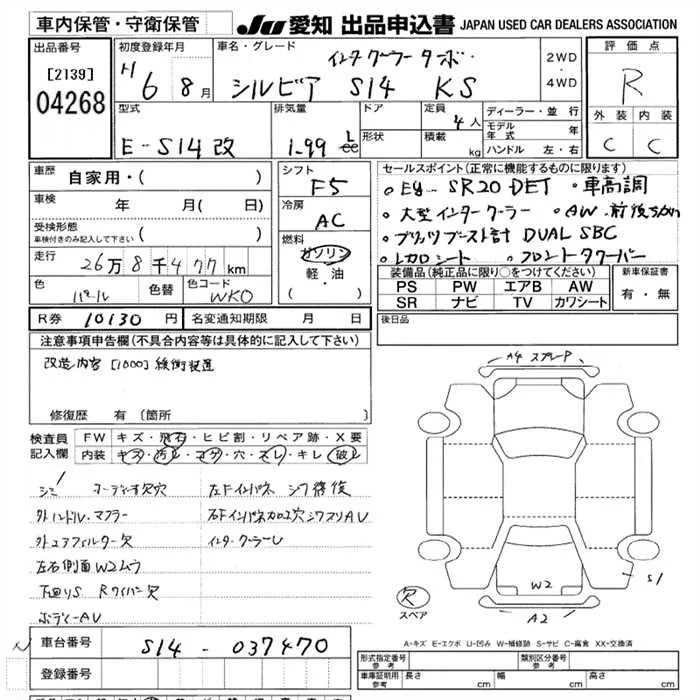 車内保管・守衛保管 JU 愛知 出品申込書 JAPAN USED CAR DEALERS ASSOCIATION
出品番号 初度登録年月 車名・グレード 評価点
[2139] インタークーラーターボ 2WD
04268 H6 8月 シルビア S14 KS 4WD R
型式 排気量 ドア 定員 ディーラー・並行 外装 内装
4人 モデル年式 年
E-S14改 1.99 L cc 形状 積載 kg ハンドル 左・右 C C
車歴 自家用・( ) シフト セールスポイント(正常に機能するものに限ります)
F5 ・Eg-SR20DET ・車高調
車検 年 月( 日) 冷房 ・大型インタークーラー ・AW.前後
受検形態 車検付きのみ記入して下さい ( ) AC ・ブリッツブースト計 DUAL SBC
走行 26万8千477km 燃料 ・レカロシート ・フロントタワーバー
ガソリン 装備品(純正品に限り○をつけてください) 新車保証書
色 パール 色替 色コード WK0 軽・油 PS PW エアB AW 有・無
( ) SR ナビ TV カワシート
R券 10130円 名変通知期限 月 日 後日品
注意事項申告欄(不具合内容等は具体的に記入して下さい)
改造内容[1000]緩衝装置
A4 スプレーP
修復歴 有(箇所
検査員記入欄 FW キズ・飛石・ヒビ割・リペア跡・X要
内装 キズ・汚レ・コゲ・穴・スレ・キレ・破レ
オーディオ欠穴 左Fインパネ シワ修復
外ハンドル・マフラー 右Fインパネ
外エアフィルター欠 インタークーラーU
左右側面W2ムラ
下回りS Rワイパー欠
ボディーAU
欠 スペア W2 S1
A2
A-キズ E-エクボ U-凹み W-補修跡 S-サビ C-腐食 XX-交換済
車台番号 S14-037470
登録番号
形式指定番号 参考 類別区分番号 参考
車庫証明用 参考 長さ cm 幅 cm 高さ cm